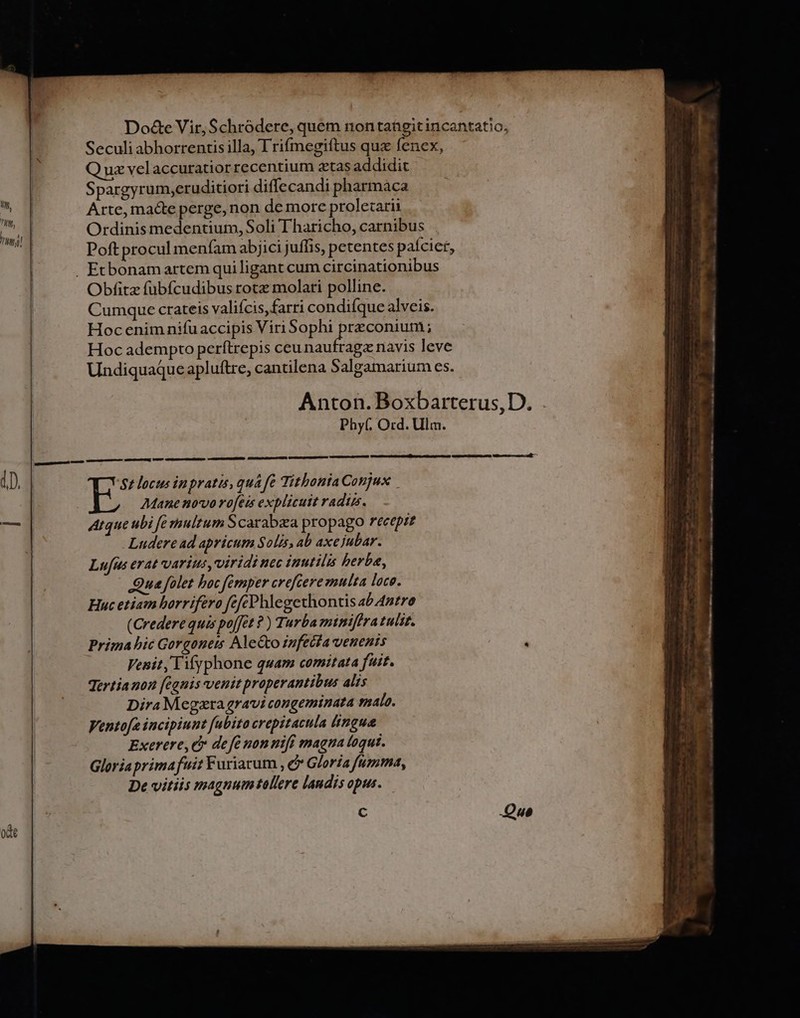 Docte Vir, Schrödere, quem non tangit incantatio,
Seculi abhorrentis illa, Triſmegiſtus quæ ſenex,
Quæ vel accuratior recentium ætas addidit
Spargyrum, eruditiori diſſecandi pharmaca
Arte, macte perge, non de more proletarii
Ordinis medentium, Soli Tharicho, carnibus
Poſt procul menſam abjici juſſis, petentes paſcier,
Et bonam artem qui ligant cum circinationibus
Obſitæ ſubſcudibus rotæ molari polline.
Cumque crateis valiſcis, farri condiſque alveis.
Hoc enim niſu accipis Viri Sophi præconium;
Hoc adempto perſtrepis ceu naufragæ navis leve
Undiquaque apluſtre, cantilena Salgamarium es.
Anton. Boxbarterus, D.
Phyſ. Ord. Ulm.
ESt locus in pratis, quâ ſe Tithonia Conjux
Mane novo roſeis explicuit radiis.
Atque ubi ſe multum Scarabæa propago recepit
Ludere ad apricum Solis, ab axe jubar.
Luſus erat varius, viridi nec inutilis herbæ,
Quæ ſolet hoc ſemper creſcere multa loco.
Huc etiam horrifero ſeſe Phlegethontis ab Antro
(Credere quis poſſet?) Turba miniſtra tulit.
Prima hic Gorgoneis Alecto infecta venenis
Venit, Tiſyphone quam comitata fuit.
Tertia non ſegnis venit properantibus alis
Dira Megæra gravi congeminata malo.
Ventoſæ incipiunt ſubito crepitacula linguæ
Exerere, & de ſe non niſi magna loqui.
Gloria prima fuit Furiarum, & Gloria ſumma,
De vitiis magnum tollere laudis opus.
C
Quo